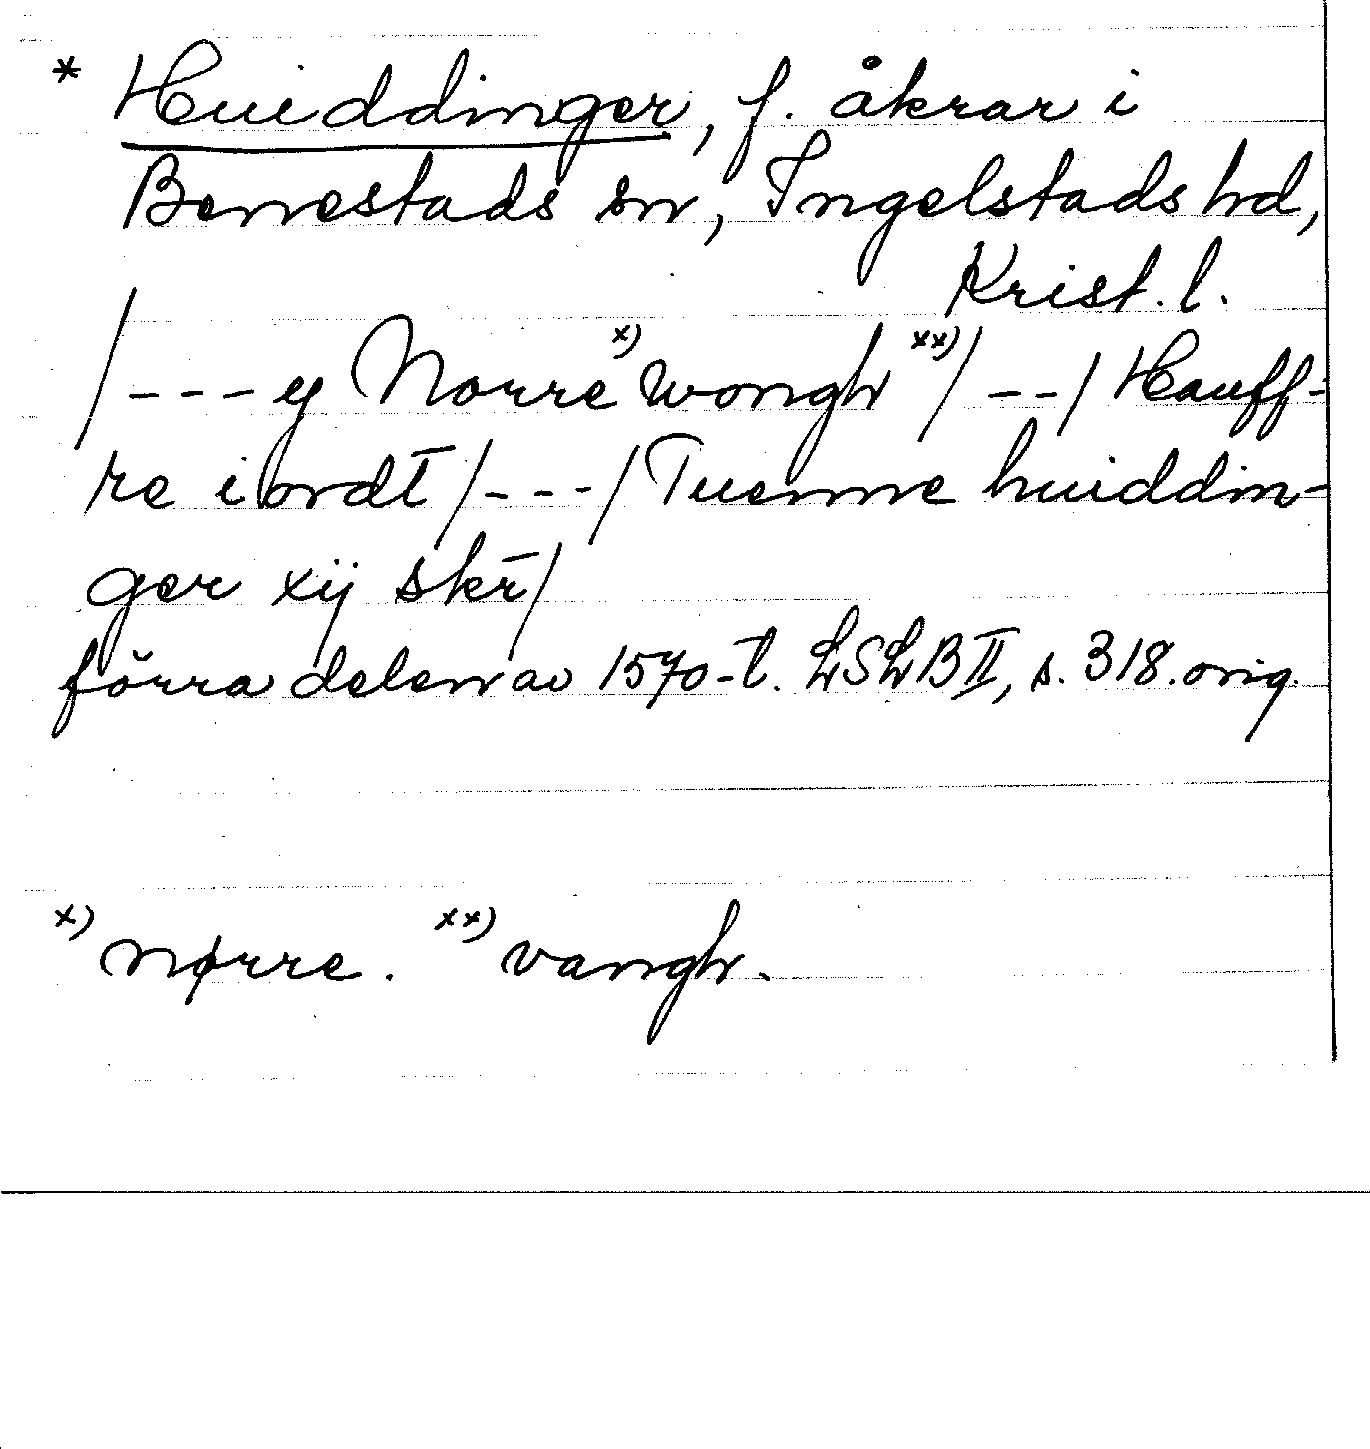 * Huiddinger, f. åkrar i
Benestads sn, Ingelstads hd,
Krist. l.
/---ij Norre x) wongh xx)/--/Hauff-
re iordt/---/Tuenne huiddin-
ger xij skr̄/
förra delen av 1570-t. LSLB II, s. 318. orig.
x) nørre. xx) vangh.